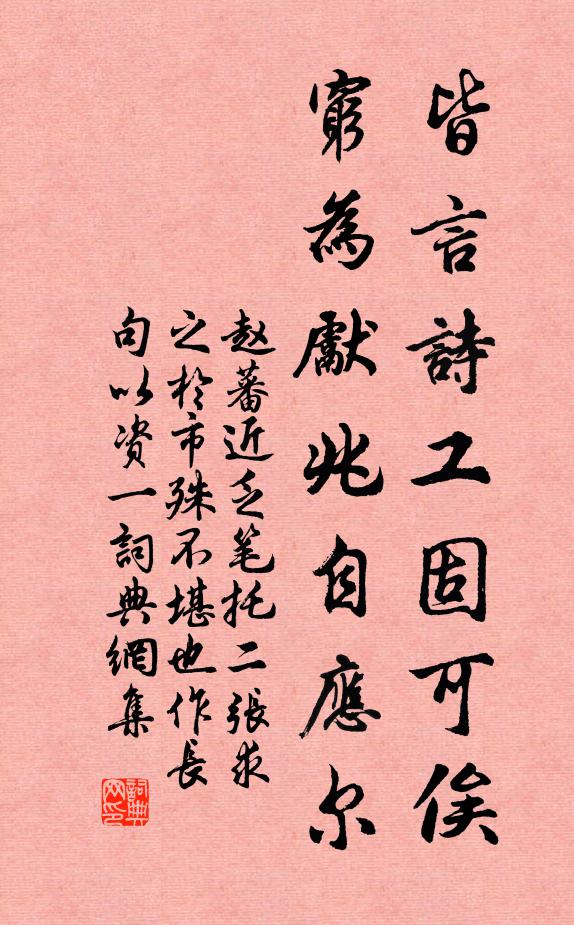 皆言詩工固可俟
窮為獻兆自應尔
赵蕃近乏笔托二張求
之於市殊不堪也作長
句以资一詞典網集
詞典网印